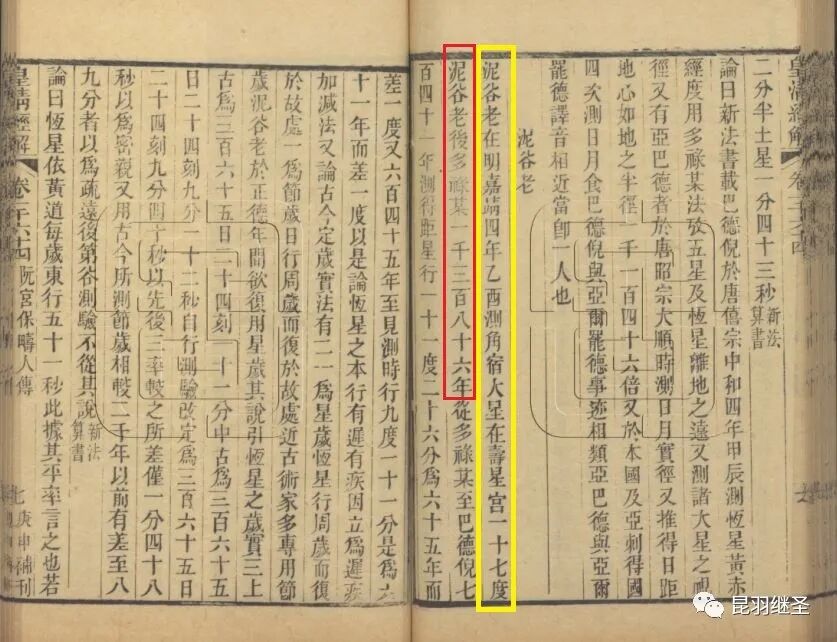 皇清經解
二分半土星一分四十三秒新法算書
論曰新法書載巴德倪於唐僖宗中和四年甲辰測恆星黃赤
經度用多祿某法攷五星及恆星離地之遠又測諸大星之視
徑又有亞巴德者於唐昭宗大順時測日月實徑又推得日距
地心如地之半徑一千一百四十六倍又於本國及亞刺得國
四次測日月食巴德倪與亞爾罷德事迹相類亞巴德與亞爾
罷德譯音相近當卽一人也
泥谷老
泥谷老在明嘉靖四年乙酉測角宿大星在壽星宮一十七度
泥谷老後多祿某一千三百八十六年從多祿某至巴德倪七
百四十一年測得距星行一十一度二十六分爲六十五年而
差一度又六百四十五年至見測時行九度一十一分是爲六
十一年而差一度以是論恆星之本行有遲有疾因立爲遲疾
加減法又論古今定歲實法有二一爲星歲恆星行周歲而復
於故處一爲節歲日行周歲而復於故處近古術家多專用節
歲泥谷老於正德年間欲復用星歲其說引恆星之歲實三上
古爲三百六十五日二十四刻一十一分中古爲三百六十五
日二十四刻九分一十二秒自行測驗改定爲三百六十五日
二十四刻九分四十秒以先後三率較之所差僅一分四十八
秒以爲密親又用古今所測節歲相較二千年以前有差至八
九分者以爲疏遠後第谷測驗不從其說新法算書
論曰恆星依黃道每歲東行五十一秒此據其平率言之也若
皇清經解 卷一千六十四 阮宮保疇人傳 七 庚申補刊
昆羽继圣